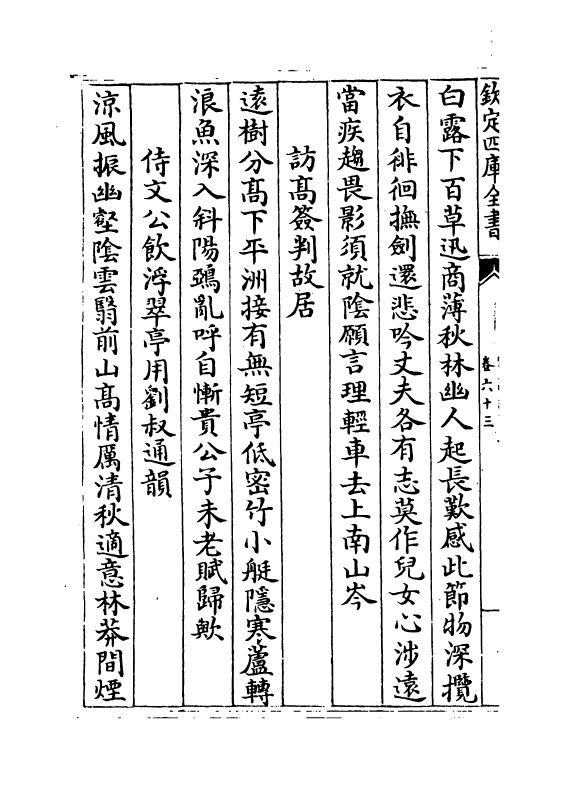 欽定四庫全書
卷六十三
白露下百草迅商薄秋林幽人起長歎感此節物深攬
衣自徘徊撫劍還悲吟丈夫各有志莫作兒女心涉遠
當疾趨畏影須就陰願言理輕車去上南山岑
訪高簽判故居
遠樹分高下平洲接有無短亭低密竹小艇隱寒蘆轉
浪魚深入斜陽鵶亂呼自慚貴公子未老賦歸歟
侍文公飲浮翠亭用劉叔通韻
涼風振幽壑陰雲翳前山高情厲清秋適意林莽間煙